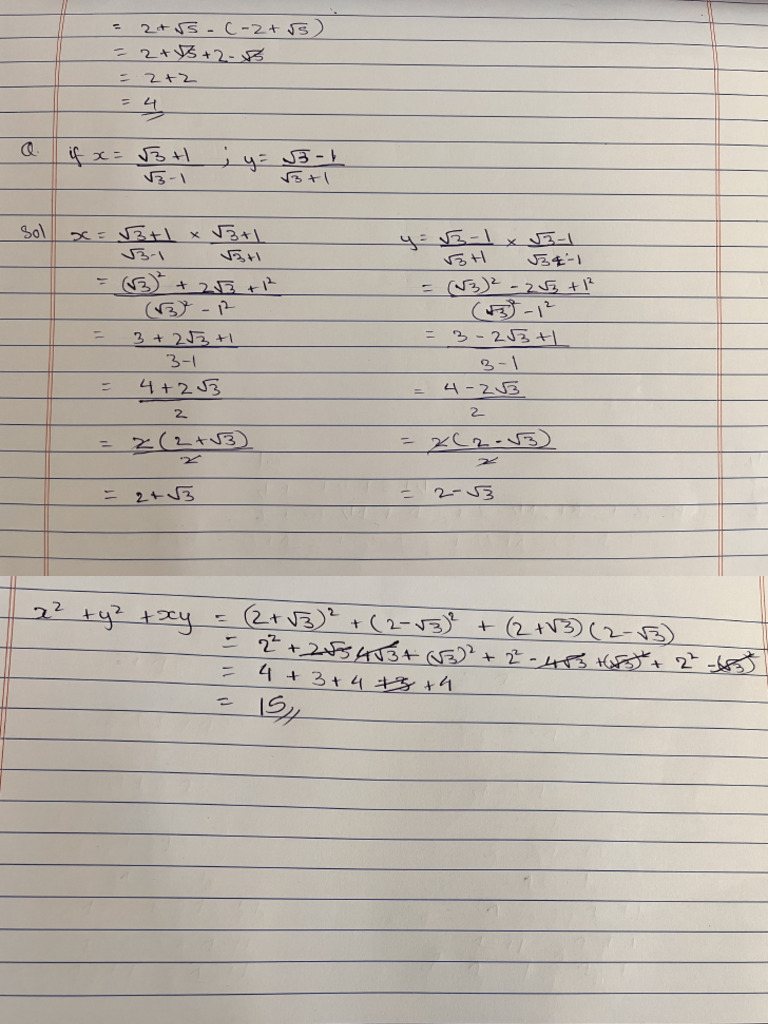 = 2+√5 - (-2+√5)
= 2+√5+2-√5
= 2+2
= 4
Q. if x = (√3+1)/(√3-1) ; y = (√3-1)/(√3+1)
Sol x = (√3+1)/(√3-1) × (√3+1)/(√3+1)
= ((√3)² + 2√3 + 1²)/((√3)² - 1²)
= (3 + 2√3 + 1)/(3-1)
= (4+2√3)/2
= 2(2+√3)/2
= 2+√3
y = (√3-1)/(√3+1) × (√3-1)/(√3-1)
= ((√3)² - 2√3 + 1²)/((√3)² - 1²)
= (3 - 2√3 + 1)/(3-1)
= (4-2√3)/2
= 2(2-√3)/2
= 2-√3
x² + y² + xy = (2+√3)² + (2-√3)² + (2+√3)(2-√3)
= 2² + 2√3 4√3 + (√3)² + 2² - 4√3 + (√3)² + 2² - (√3)²
= 4 + 3 + 4 + 3 + 4
= 15